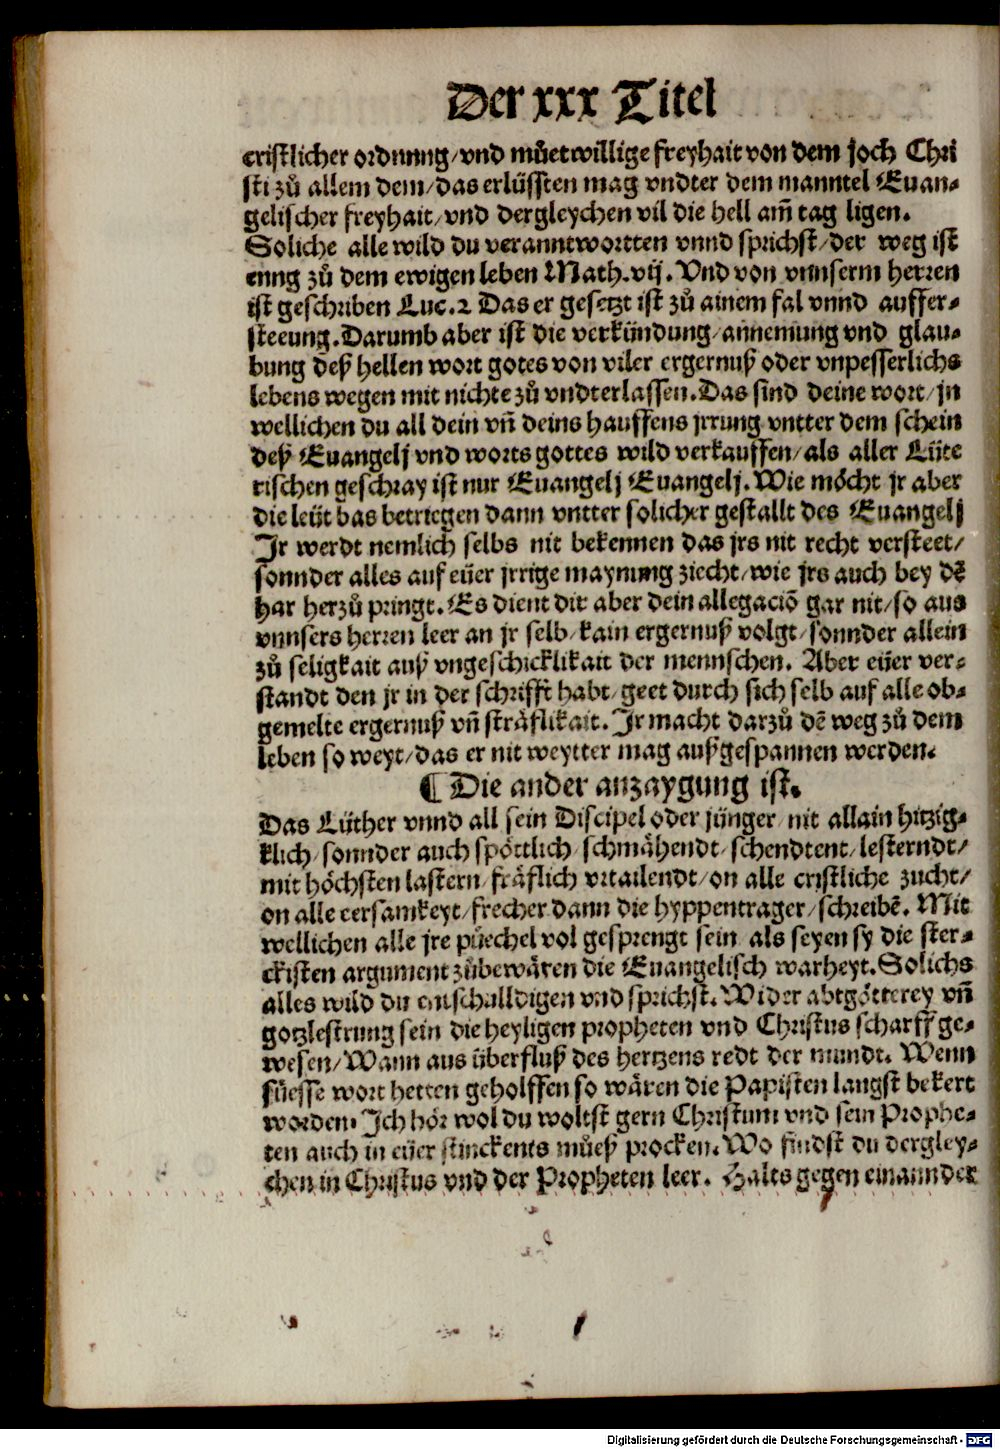 Der xxx Titel
cristlicher ordnung/vnd můetwillige freyhait von dem joch Chri
sti zů allem dem/das erlüssten mag vndter dem manntel Euan-
gelischer freyhait/vnd dergleychen vil die hell am̃ tag ligen.
Soliche alle wild du veranntwortten vnnd sprichst/der weg ist
enng zů dem ewigen leben Math.vij. Vnd von vnnserm herren
ist geschriben Luc.2 Das er gesetzt ist zů ainem fal vnnd auffer-
steeung. Darumb aber ist die verkündung/annemung vnd glau-
bung deß hellen wort gotes von viler ergernuß oder vnpesserlichs
lebens wegen mit nichte zů vndterlassen. Das sind deine wort/jn
wellichen du all dein vñ deins hauffens jrrung vntter dem schein
deß Euangelj vnd worts gottes wild verkauffen/als aller Lüte
rischen geschray ist nur Euangelj Euangelj. Wie möcht jr aber
die leüt bas betriegen dann vntter solicher gestallt des Euangelj
Jr werdt nemlich selbs nit bekennen das jrs nit recht versteet/
sonnder alles auf eüer jrrige maynung ziecht/wie jrs auch bey dẽ
har herzů pringt. Es dient dir aber dein allegaciõ gar nit/so aus
vnnsers herren leer an jr selb/kain ergernuß volgt/sonnder allein
zů seligkait auß vngeschicklikait der mennschen. Aber eüer ver-
standt den jr in der schrifft habt/geet durch sich selb auf alle ob-
gemelte ergernuß vñ sträflikait. Jr macht darzů dẽ weg zů dem
leben so weyt/das er nit weytter mag außgespannen werden.
¶ Die ander anzaygung ist.
Das Lüther vnnd all sein Discipel oder jünger/nit allain hitzig-
klich/sonnder auch spöttlich/schmähendt/schendtent/lesterndt/
mit höchsten lastern/fräflich vrtailendt/on alle cristliche zucht/
on alle eersamkeyt/frecher dann die hyppentrager/schreibẽ. Mit
wellichen alle jre püechel vol gesprengt sein als seyen sy die ster-
ckisten argument zůbewären die Euangelisch warheyt. Solichs
alles wild du entschulldigen vnd sprichst. Wider abtgötterey vñ
gotzlestrung sein die heyligen propheten vnd Christus scharff ge-
wesen/Wann aus überfluß des hertzens redt der mundt. Wenn
süesse wort hetten geholffen so wären die Papisten langst bekert
worden. Jch hör wol du woltst gern Christum vnd sein Prophe-
ten auch in eüer stinckents můeß procken. Wo findst du dergley-
chen in Christus vnd der Propheten leer. Halts gegen einannder
Digitalisierung gefördert durch die Deutsche Forschungsgemeinschaft - DFG